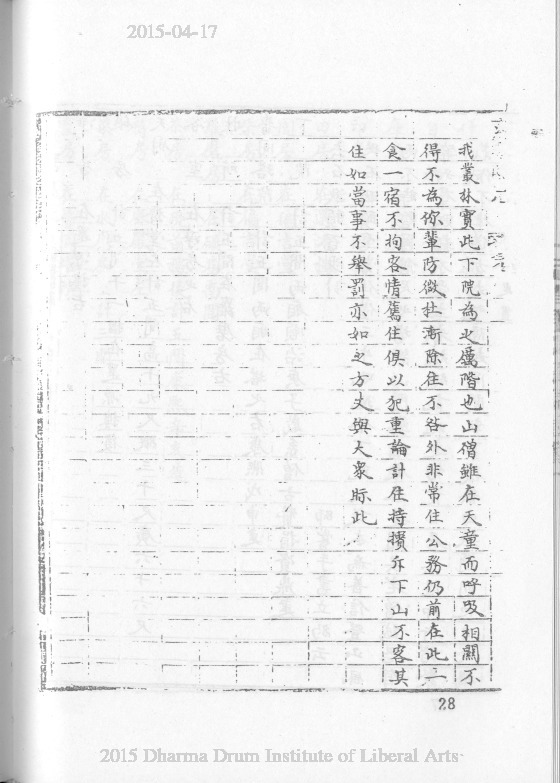 2015-04-17
我叢林實此下院為之厲階也山僧雖在天童而呼吸相關不
得不為你輩防微杜漸除往不咎外非常住公務仍前在此二
食一宿不拘客情舊住俱以犯重論計住持擯斥下山不容其
住如當事不舉罰亦如之方丈與大眾眎此
28
2015 Dharma Drum Institute of Liberal Arts